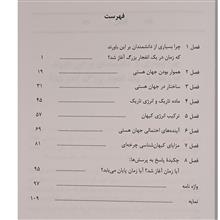 فهرست
فصل ۱ چرا بسیاری از دانشمندان بر این باورند
که زمان در یک انفجار بزرگ آغاز شد؟ ۱
فصل ۲ هموار بودن جهان هستی ۱۹
فصل ۳ ساختار در جهان هستی ۳۱
فصل ۴ ماده تاریک و انرژی تاریک ۴۵
فصل ۵ ترکیب انرژی کیهان ۵۷
فصل ۶ آینده‌های احتمالی جهان هستی ۶۹
فصل ۷ مزایای کیهان‌شناسی چرخه‌ای ۸۱
فصل ۸ چکیدهٔ پاسخ به پرسش‌ها:
آیا زمان آغاز شد؟ آیا زمان پایان می‌یابد؟ ۹۵
واژه نامه ۹۷
نمایه ۱۰۹